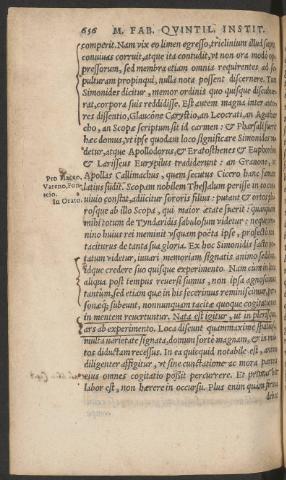 656 M. FAB. QVINTIL. INSTIT.
comperit. Nam vix eo limen egresso, triclinium illud supra
conuiuas corruit, atque ita contudit, vt non ora modo op-
pressorum, sed membra etiam omnia requirentes ad se-
pulturam propinqui, nulla nota possent discernere. Tum
Simonides dicitur, memor ordinis quo quisque discubue-
rat, corpora suis reddidisse. Est autem magna inter auto-
res dissentio, Glaucóne Carystio, an Leocrati, an Agathar
cho, an Scopæ scriptum sit id carmen: & Pharsali fuerit
hæc domus, vt ipse quodam loco significare Simonides vi-
detur, atque Apollodorus, & Eratosthenes & Euphorion
& Larisseus Eurypilus tradiderunt: an Cranone, vt
Apollas Callimachus, quem secutus Cicero hanc famam
latius fudit. Scopam nobilem Thessalum perisse in eo con-
uiuio constat, adiicitur sororis filius: putant & ortos ple-
rosque ab illo Scopa, qui maior ætate fuerit: quanquam
mihi totum de Tyndaridis fabulosum videtur: neque om-
nino huius rei meminit vsquam poeta ipse, profecto non
taciturus de tanta sua gloria. Ex hoc Simonidis facto no-
tatum videtur, iuuari memoriam signatis animo sedibus:
idque credere suo quisque experimento. Nam cum in loca
aliqua post tempus reuersi sumus, non ipsa agnoscimus
tantum, sed etiam quæ in his fecerimus reminiscimur, per-
sonæq; subeunt, nonnunquam tacitæ quoque cogitationes
in mentem reuertuntur. Nata est igitur, vt in plerisque
ars ab experimento. Loca discunt quammaximè spatiosa,
multa varietate signata, domum fortè magnam, & in mul-
tos diductam recessus. In ea quicquid notabile est, animo
diligenter affigitur, vt sine cunctatione ac mora partes
eius omnes cogitatio possit percurrere. Et primus hic
labor est, non hærere in occursu. Plus enim quàm firma
debet
Pro Racco,
Vareno, Fun-
In Orato.